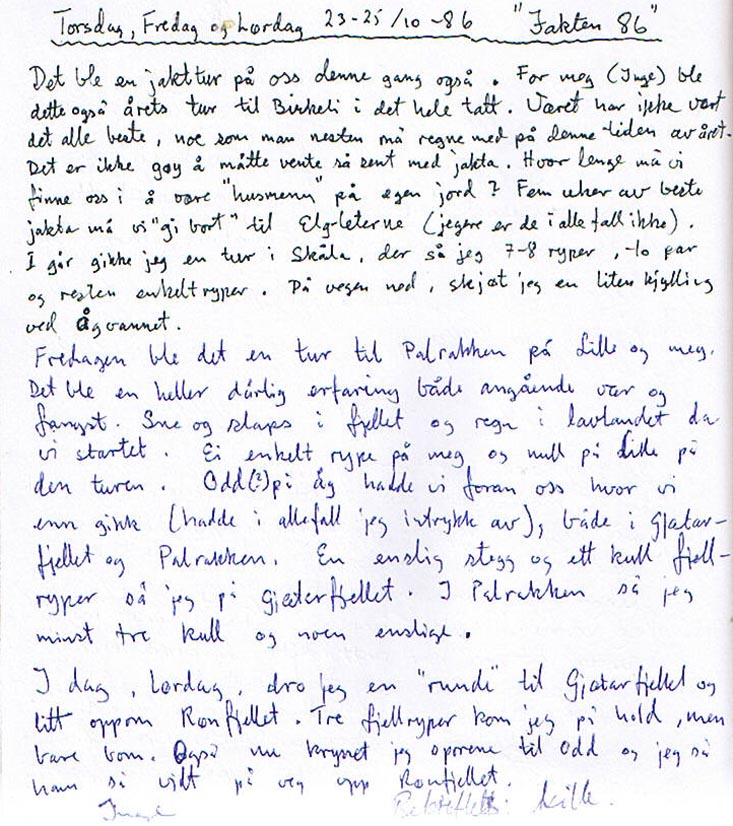 Torsdag, Fredag og Lørdag 23-25/10-86 "Jakten 86"
Det ble en jakttur på oss denne gang også. For meg (Inge) ble
dette også årets tur til Birkeli i det hele tatt. Været har ikke vært
det alle beste, noe som man nesten må regne med på denne tiden av året.
Det er ikke gøy å måtte vente så sent med jakta. Hvor lenge må vi
finne oss i å være "husmenn" på egen jord? Fem uker av beste
jakta må vi "gi bort" til Elg-leterne (jegere er de i alle fall ikke).
I går gikk jeg en tur i Skåla, der så jeg 7-8 ryper, to par
og resten enkeltryper. På vegen ned, skjøt jeg en liten kylling
ved Ågvannet.
Fredagen ble det en tur til Palrakken på Lille og meg.
Det ble en heller dårlig erfaring både angående vær og
fangst. Snø og slaps i fjellet og regn i lavlandet da
vi startet. Ei enkelt rype på meg og null på Lille på
den turen. Odd(?) på Åg hadde vi foran oss hvor vi
enn gikk (hadde i allefall jeg intrykk av), både i Gjætar-
fjellet og Palrakken. En enslig stegg og ett kull fjell-
ryper så jeg på Gjæterfjellet. I Palrakken så jeg
minst tre kull og noen enslige.
I dag, Lørdag, dro jeg en "runde" til Gjætarfjellet og
litt oppom Rønfjellet. Tre fjellryper kom jeg på hold, men
bare bom. Også nu krysset jeg sporene til Odd og jeg så
ham så vidt på veg opp Rønfjellet.
Inge Lille.